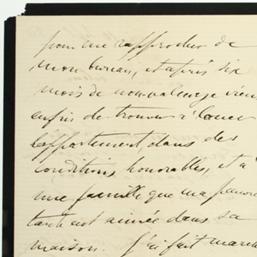 pour me rapprocher de
mon bureau, et après six
mois de
enfin de trouver à louer
l'appartement dans des
conditions honorables, et à
une famille que ma pauvre
tante est aimée dans sa
maison. J'ai fait